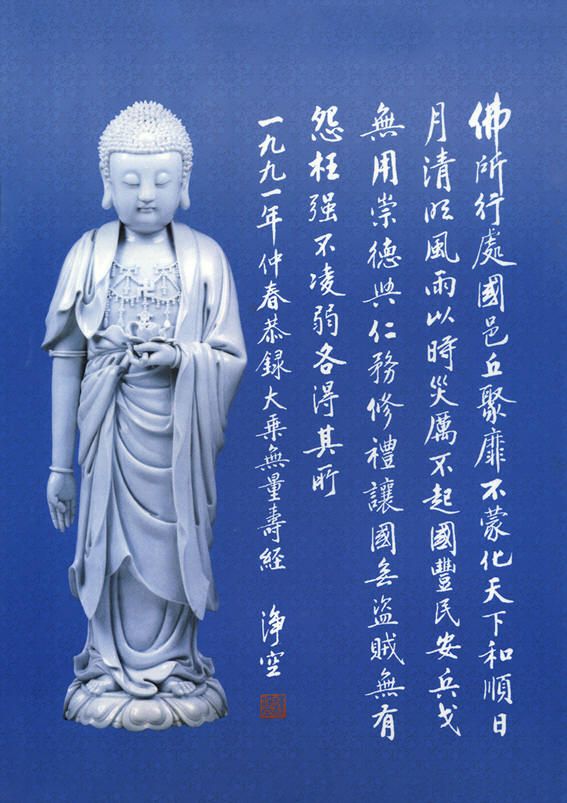 佛所行處國邑丘聚靡不蒙化天下和順日
月清明風雨以時災厲不起國豐民安兵戈
無用崇德興仁務修禮讓國無盜賊無有
怨枉强不凌弱各得其所
一九九一年仲春恭録大乗無量壽経 淨空